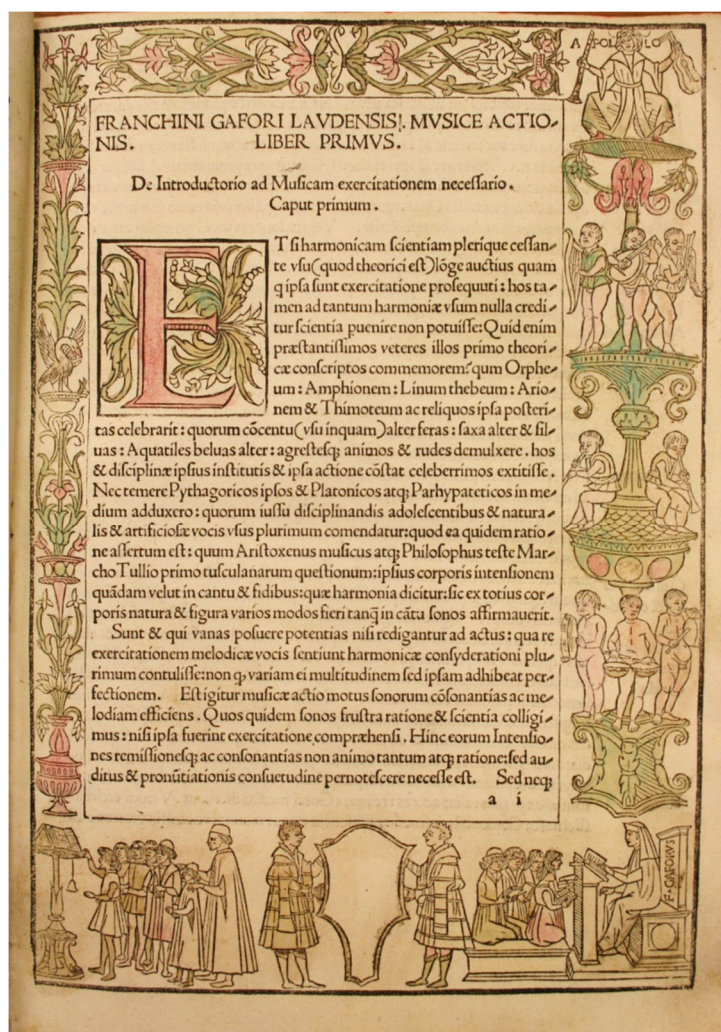 APOLLO
FRANCHINI GAFORI LAVDENSIS!. MVSICE ACTIO-
NIS. LIBER PRIMVS.
De Introductorio ad Musicam exercitationem necessario.
Caput primum.
ET si harmonicam scientiam plerique cessan-
te vsu (quod theorici est) lõge auctius quam
q ipsa sunt exercitatione prosequuti: hos ta-
men ad tantum harmoniæ vsum nulla credi-
tur scientia puenire non potuisse: Quid enim
præstantissimos veteres illos primo theori-
cæ conscriptos commemorem? qum Orphe-
um: Amphionem: Linum thebeum: Ario-
nem & Thimoteum ac reliquos ipsa posteri-
tas celebrarit: quorum cõcentu (vsu inquam) alter feras: saxa alter & sil-
uas: Aquatiles beluas alter: agrestesq; animos & rudes demulxere. hos
& disciplinæ ipsius institutis & ipsa actione cõstat celeberrimos extitisse.
Nec temere Pythagoricos ipsos & Platonicos atq; Parhypateticos in me-
dium adduxero: quorum iussu disciplinandis adolescentibus & natura-
lis & artificiosæ vocis vsus plurimum comendatur: quod ea quidem ratio-
ne assertum est: quum Aristoxenus musicus atq; Philosophus teste Mar-
cho Tullio primo tusculanarum questionum: ipsius corporis intensionem
quãdam velut in cantu & fidibus: quæ harmonia dicitur: sic ex totius cor-
poris natura & figura varios modos fieri tanq̃ in cãtu sonos affirmauerit.
Sunt & qui vanas posuere potentias nisi redigantur ad actus: qua re
exercitationem melodicæ vocis sentiunt harmonicæ consyderationi plu-
rimum contulisse: non q variam ei multitudinem sed ipsam adhibeat per-
fectionem. Est igitur musicæ actio motus sonorum cõsonantias ac me-
lodiam efficiens. Quos quidem sonos frustra ratione & scientia colligi-
mus: nisi ipsa fuerint exercitatione compræhensi. Hinc eorum Intensio-
nes remissionesq; ac consonantias non animo tantum atq; ratione: sed au-
ditus & pronũtiationis consuetudine pernotescere necesse est. Sed neq;
a i
F. GAFORVS